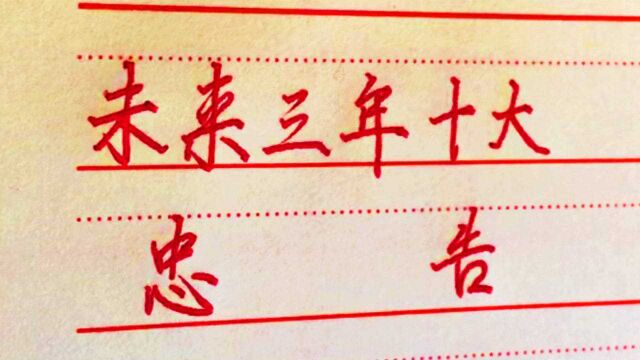 未来三年十大
忠告